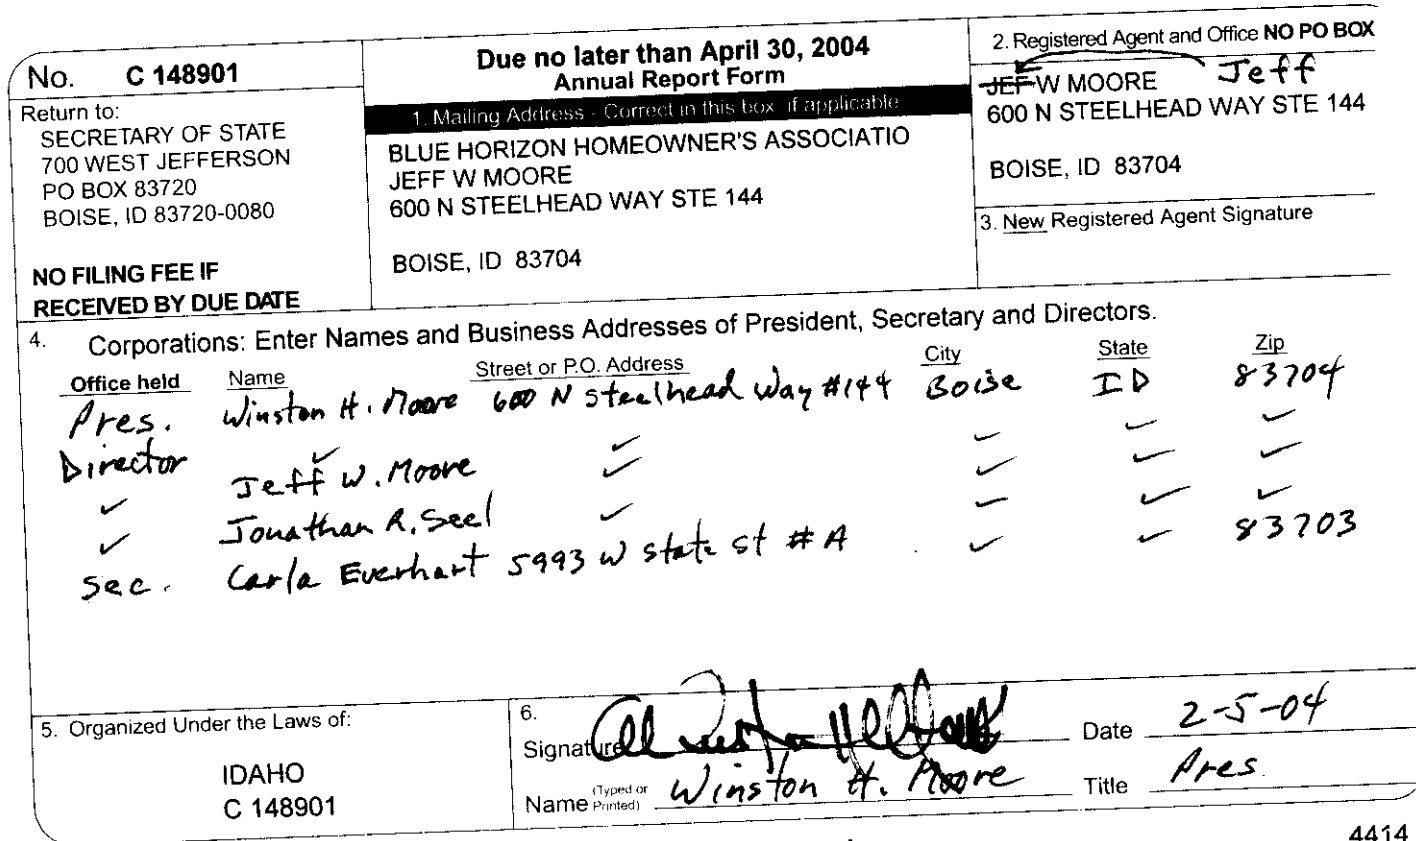 No. C 148901
Return to:
SECRETARY OF STATE
700 WEST JEFFERSON
PO BOX 83720
BOISE, ID 83720-0080
NO FILING FEE IF
RECEIVED BY DUE DATE
Due no later than April 30, 2004
Annual Report Form
1. Mailing Address - Correct in this box if applicable
BLUE HORIZON HOMEOWNER'S ASSOCIATIO
JEFF W MOORE
600 N STEELHEAD WAY STE 144
BOISE, ID 83704
2. Registered Agent and Office NO PO BOX
JEF W MOORE Jeff
600 N STEELHEAD WAY STE 144
BOISE, ID 83704
3. New Registered Agent Signature
4. Corporations: Enter Names and Business Addresses of President, Secretary and Directors.
Office held Name Street or P.O. Address City State Zip
Pres. Winston H. Moore 600 N Steelhead Way #144 Boise ID 83704
Director ✓ ✓ ✓ ✓ ✓
✓ Jeff W. Moore ✓ ✓ ✓ ✓
✓ Jonathan R. Seel ✓ ✓ ✓ ✓
Sec. Carla Everhart 5993 W State St # A ✓ ✓ 83703
5. Organized Under the Laws of:
IDAHO
C 148901
6.
Signature Date 2-5-04
Name (Typed or Printed) Winston H. Moore Title Pres
4414